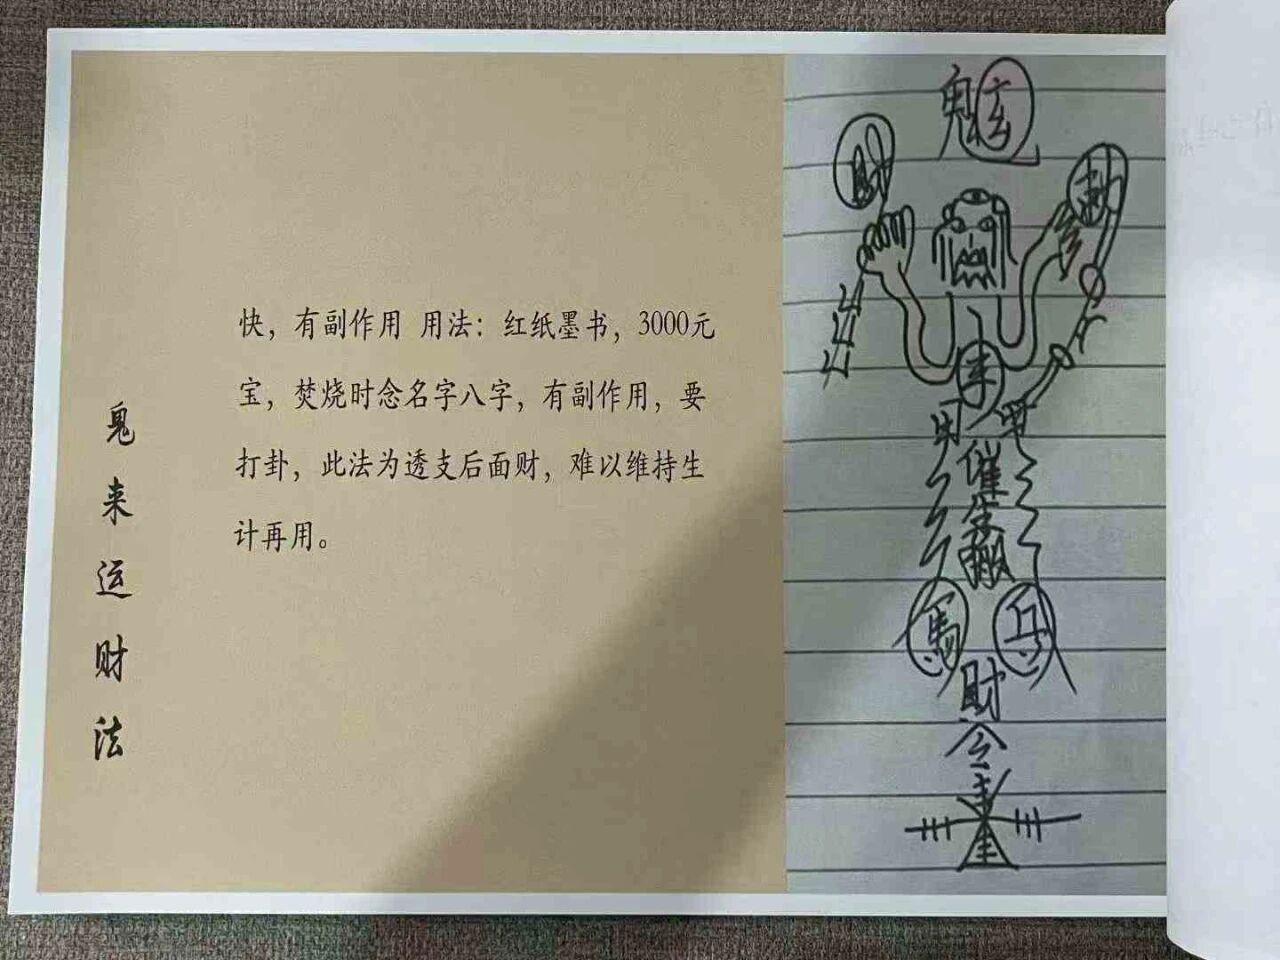 鬼来运财法
快，有副作用 用法：红纸墨书，3000元
宝，焚烧时念名字八字，有副作用，要
打卦，此法为透支后面财，难以维持生
计再用。
财
催
馬
兵
财